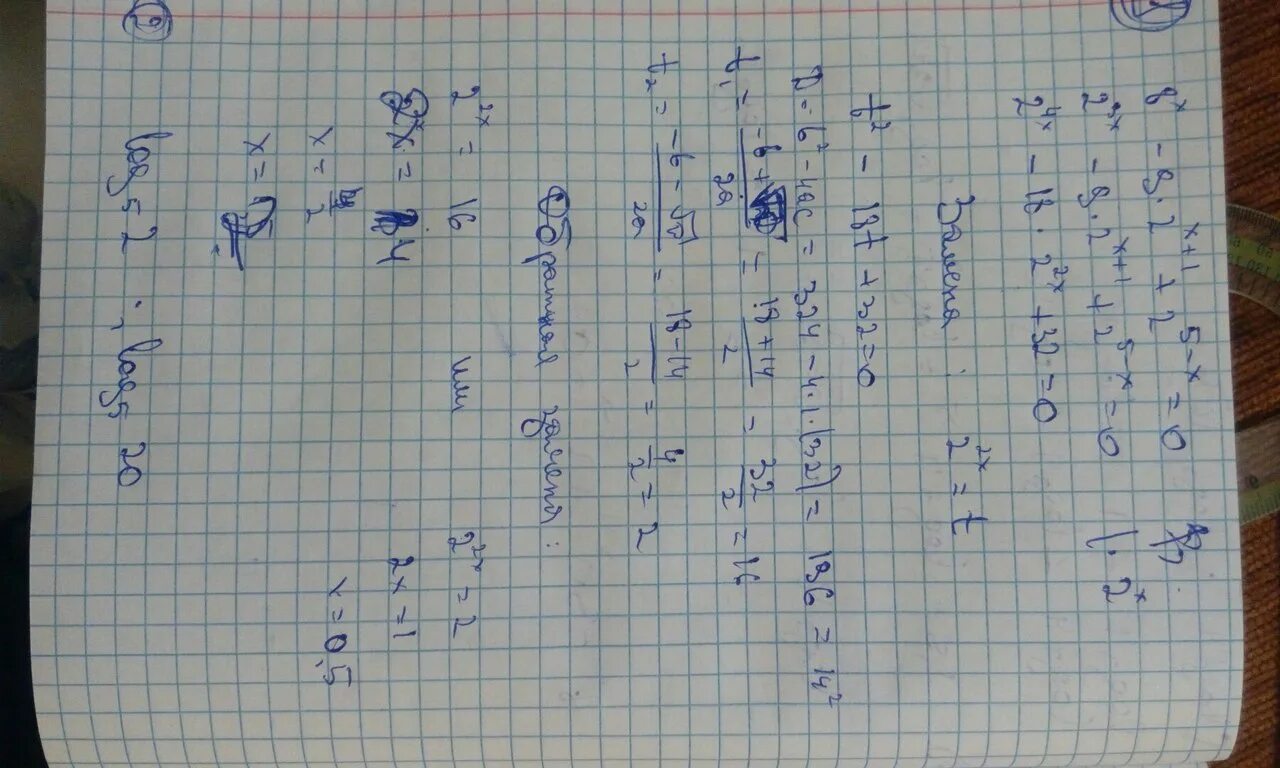 8^x - 9·2^{x+1} + 2^{5-x} = 0
2^{3x} - 9·2^{x+1} + 2^{5-x} = 0 |·2^x
2^{4x} - 18·2^{2x} + 32 = 0
Замена: 2^{2x} = t
t² - 18t + 32 = 0
D = b² - 4ac = 324 - 4·1·(32) = 196 = 14²
t₁ = \frac{-b+}{2a} = \frac{18+14}{2} = \frac{32}{2} = 16
t₂ = \frac{-b-√D}{2a} = \frac{18-14}{2} = \frac{4}{2} = 2
Обратная замена:
2^{2x} = 16 или 2^{2x} = 2
2x = 4 2x = 1
x = \frac{4}{2} x = 0,5
x =
②
log₅ 2 ; log₅ 20